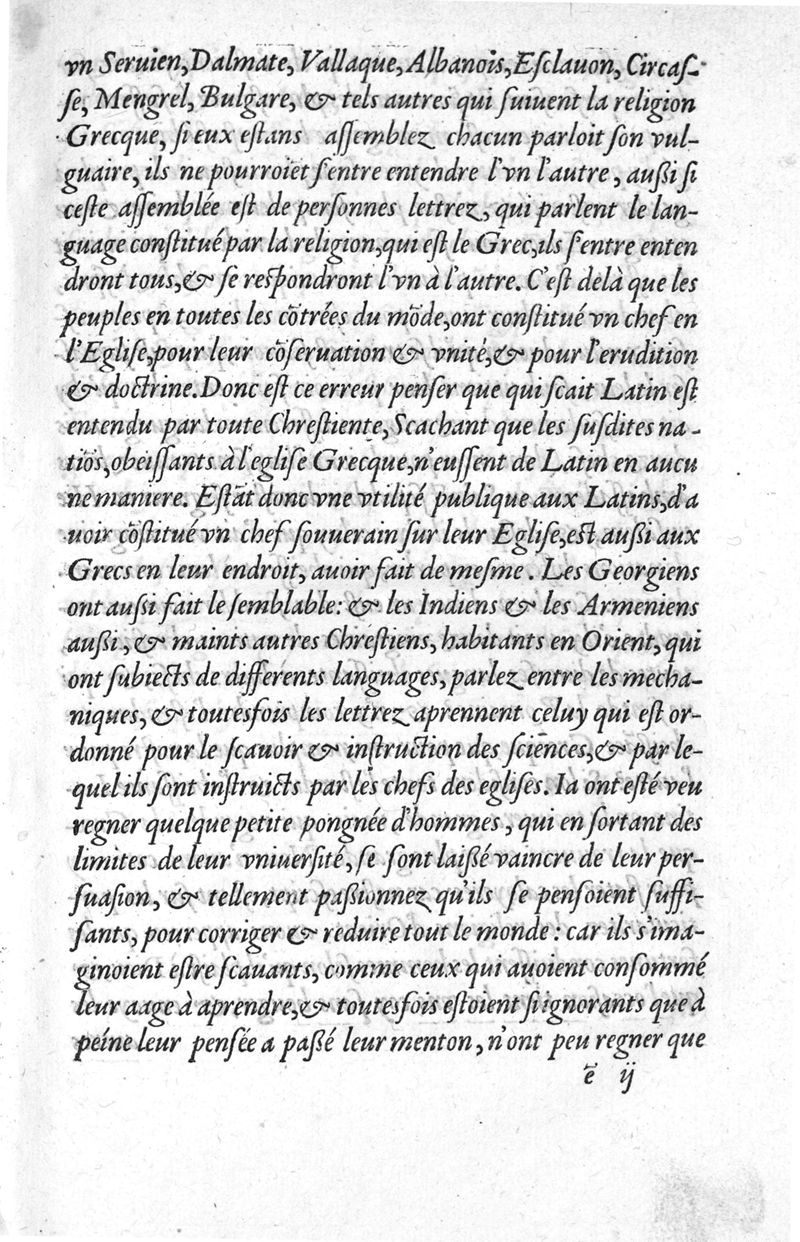 vn Seruien, Dalmate, Vallaque, Albanois, Eſclauon, Circaſ-
ſe, Mengrel, Bulgare, & tels autres qui ſuiuent la religion
Grecque, ſi eux eſtans aſſemblez chacun parloit ſon vul-
guaire, ils ne pourroiēt ſ'entre entendre l'vn l'autre, auſſi ſi
ceſte aſſemblée eſt de perſonnes lettrez, qui parlent le lan-
guage conſtitué par la religion, qui eſt le Grec, ils ſ'entre enten
dront tous, & ſe reſpondront l'vn à l'autre. C'eſt delà que les
peuples en toutes les cōtrées du mōde, ont conſtitué vn chef en
l'Egliſe, pour leur cōſeruation & vnité, & pour l'erudition
& doctrine. Donc eſt ce erreur penſer que qui ſcait Latin eſt
entendu par toute Chreſtiente, Scachant que les ſuſdites na-
tiōs, obeiſſants à l'egliſe Grecque, n'euſſent de Latin en aucu
ne maniere. Eſtāt donc vne vtilité publique aux Latins, d'a
uoir cōſtitué vn chef ſouuerain ſur leur Egliſe, eſt auſſi aux
Grecs en leur endroit, auoir fait de meſme. Les Georgiens
ont auſſi fait le ſemblable: & les Indiens & les Armeniens
auſſi, & maints autres Chreſtiens, habitants en Orient, qui
ont ſubiects de differents languages, parlez entre les mecha-
niques, & toutesfois les lettrez aprennent celuy qui eſt or-
donné pour le ſcauoir & inſtruction des ſciences, & par le-
quel ils ſont inſtruicts par les chefs des egliſes. Ia ont eſté veu
regner quelque petite pongnée d'hommes, qui en ſortant des
limites de leur vniuerſité, ſe ſont laiſſé vaincre de leur per-
ſuaſion, & tellement paſſionnez qu'ils ſe penſoient ſuffi-
ſants, pour corriger & reduire tout le monde: car ils s'ima-
ginoient eſtre ſcauants, comme ceux qui auoient conſommé
leur aage à aprendre, & toutesfois eſtoient ſi ignorants que à
peine leur penſée a paſſé leur menton, n'ont peu regner que
ē ij